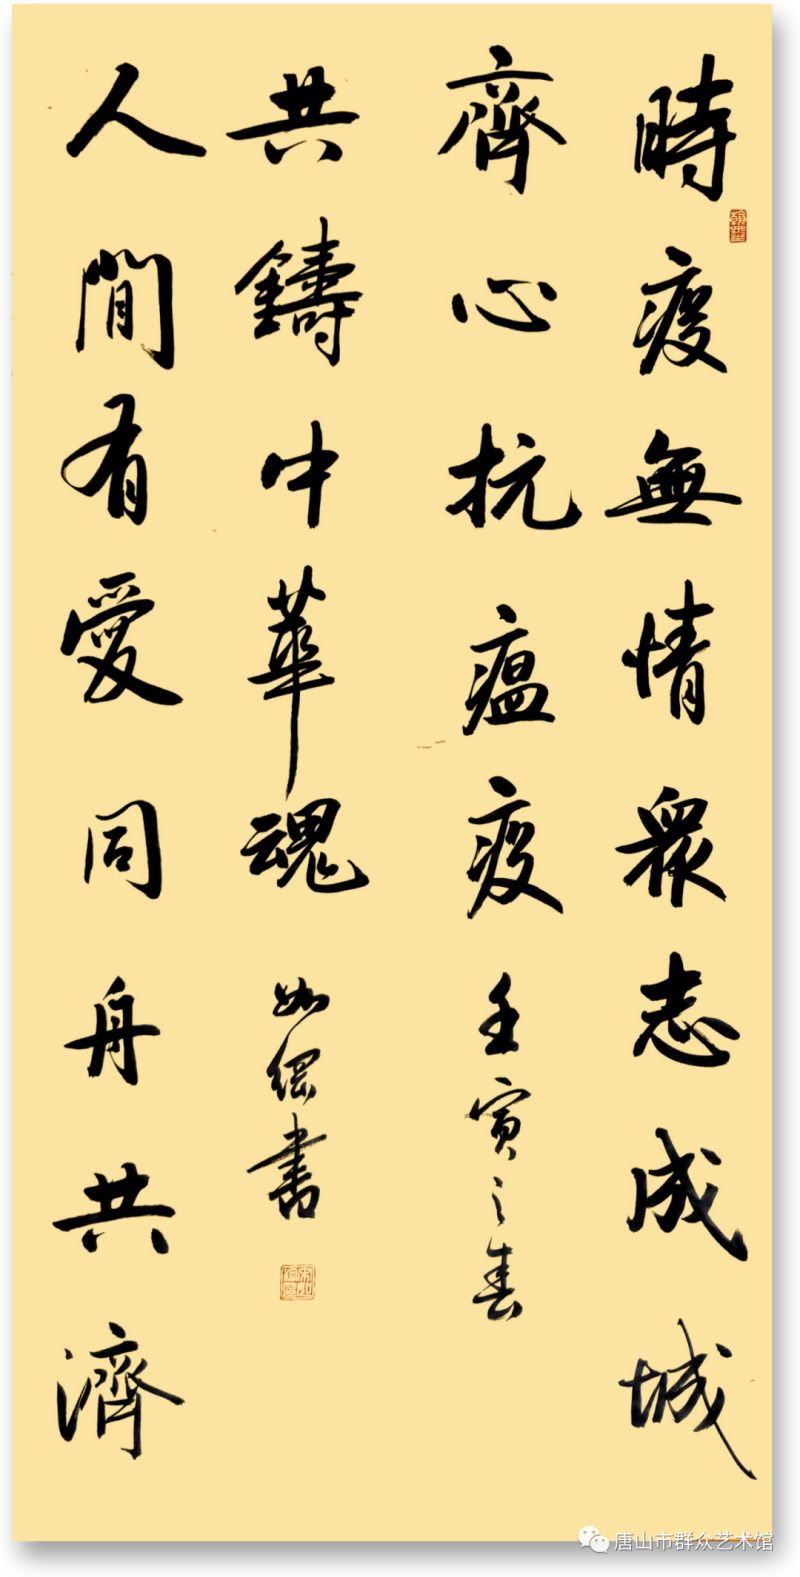 時疫無情衆志成城
齊心抗瘟疫
壬寅之春
人間有愛同舟共濟
共鑄中華魂
如書
唐山市群众艺术馆